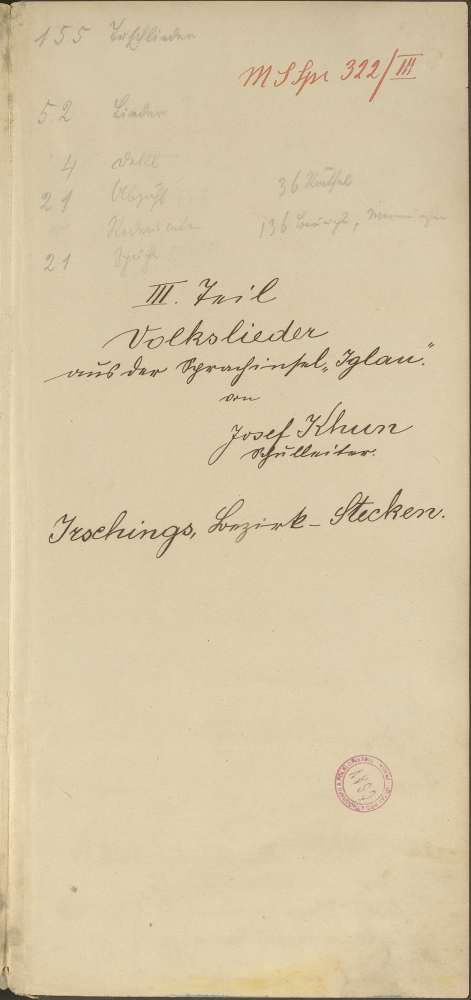 155
MS Spr 322/III
52 Lieder
4
21
36 Räthsel
136
21
III. Teil
Volkslieder
aus der Sprachinsel „Iglau“.
von
Josef Khun
Schulleiter.
Irschings, Bezirk - Stecken.